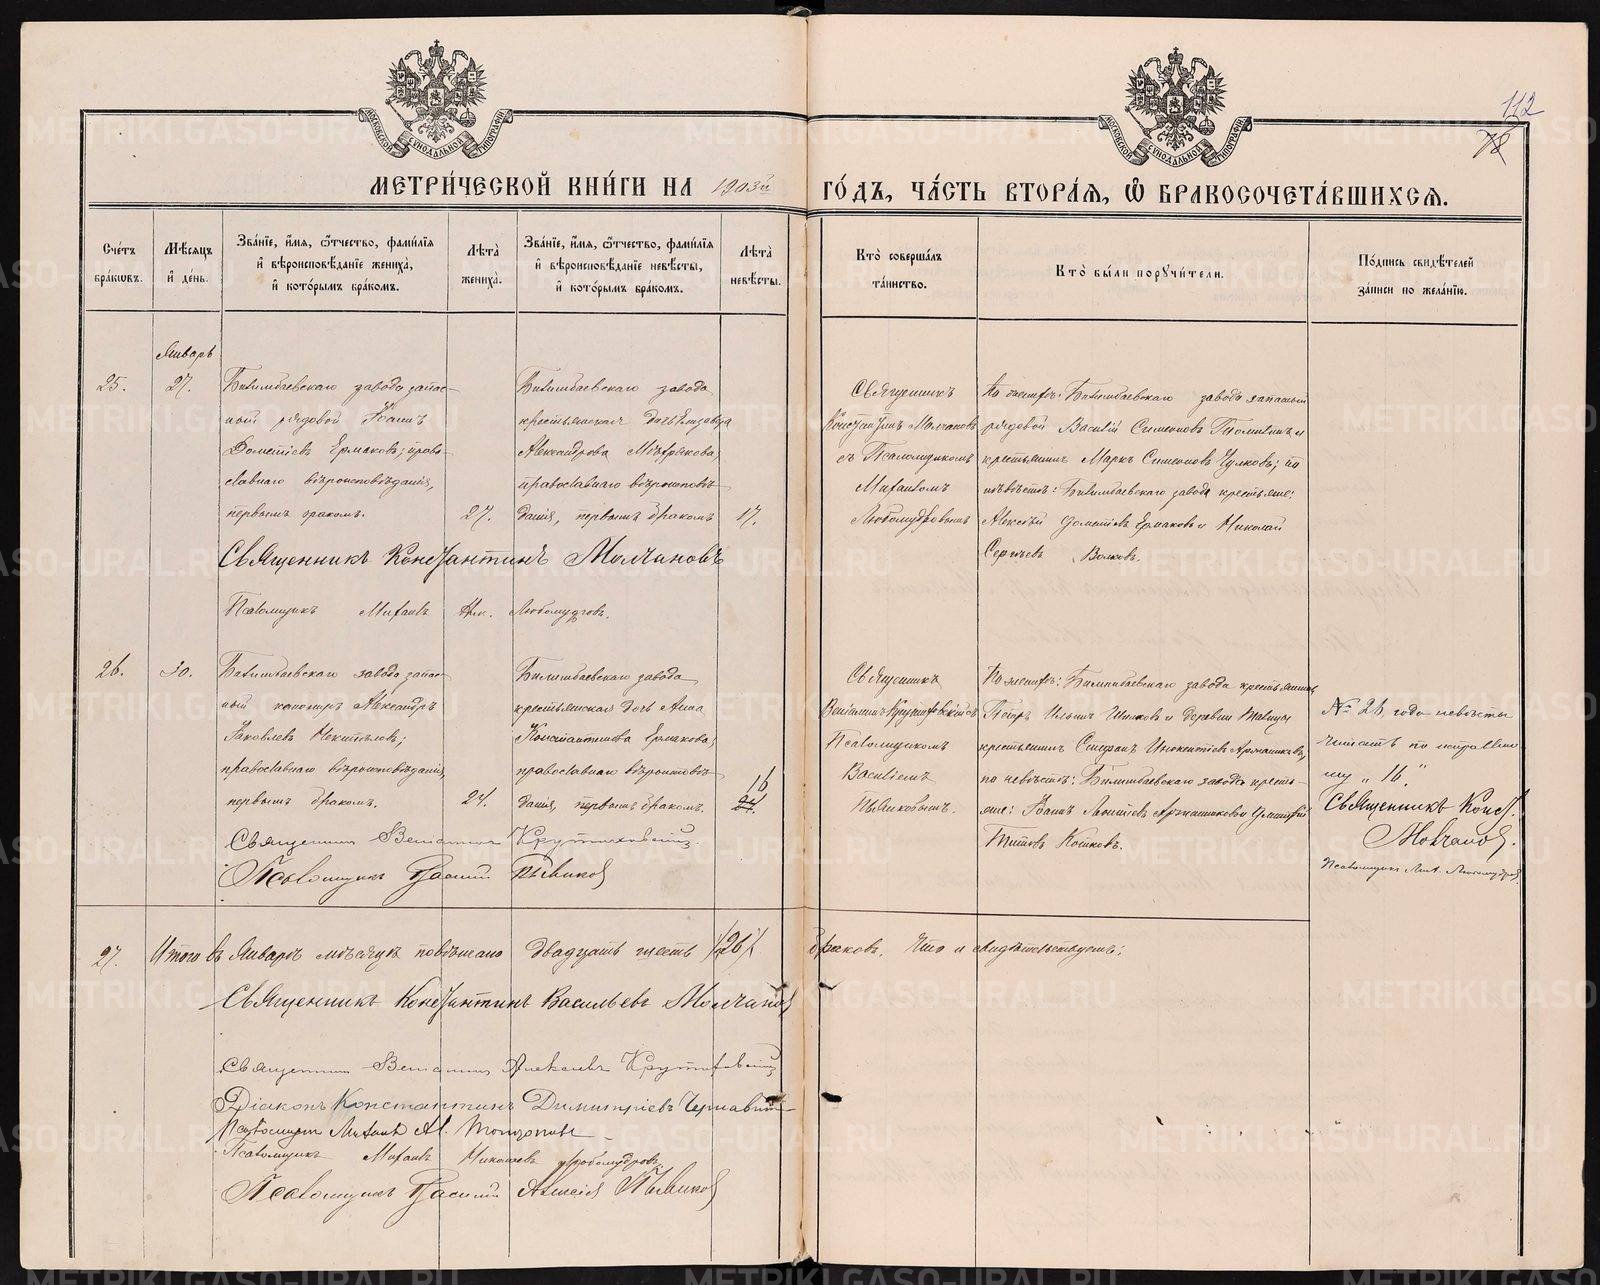 112
78
МОСКОВСКОЙ СѴНОДАЛЬНОЙ ТИПОГРАФІИ
МОСКОВСКОЙ СѴНОДАЛЬНОЙ ТИПОГРАФІИ
МЕТРИ́ЧЕСКОЙ КНИ́ГИ НА 1903й ГО́ДЪ, ЧА́СТЬ ВТОРА́Я, Ѽ БРАКОСОЧЕТА́ВШИХСЯ.
Сче́тъ бра́ковъ.
Мѣ́сяцъ и҆ де́нь.
Зва́нїе, и҆́мя, ѻ҆́тчество, фами́лїя и҆ вѣроисповѣ́данїе жениха̀, и҆ кото́рымъ бра́комъ.
Лѣта̀ жениха̀.
Зва́нїе, и҆́мя, ѻ҆́тчество, фами́лїя и҆ вѣроисповѣ́данїе невѣ́сты, и҆ кото́рымъ бра́комъ.
Лѣта̀ невѣ́сты.
Кто̀ соверша́лъ та́инство.
Кто̀ бы́ли порꙋчи́тели.
По́дпись свидѣ́телей за́писи по жела́нїю.
Январь
25.
27.
Билимбаевскаго завода запас-
ный рядовой Иванъ
Дометіевъ Ермаковъ; право-
славнаго вѣроисповѣданія,
первымъ бракомъ.
27.
Билимбаевскаго завода
крестьянская дочь Елизавета
Александрова
православнаго вѣроисповѣ-
данія, первымъ бракомъ
17.
Священникъ
Константинъ Молчановъ
съ Псаломщикомъ
Михаиломъ
Любомудровымъ
По женихѣ: Билимбаевскаго завода запасный
рядовой Василій Симеоновъ и
крестьянинъ Маркъ Симеоновъ Чулковъ; по
невѣстѣ: Билимбаевскаго завода крестьяне:
Алексѣй Дометіевъ Ермаковъ и Николай
Сергѣевъ Волковъ.
Священникъ Константинъ Молчановъ
Псаломщикъ Михаилъ Ник. Любомудровъ.
26.
30.
Билимбаевскаго завода запас-
ный канониръ Александръ
Яковлевъ
православнаго вѣроисповѣданія,
первымъ бракомъ.
24.
Билимбаевскаго завода
крестьянская дочь Анна
Константинова Ермакова,
православнаго вѣроисповѣ-
данія, первымъ бракомъ.
16
24.
Священникъ
Веніаминъ Крутиховскій съ
Псаломщикомъ
Василіемъ
Пьянковымъ.
По женихѣ: Билимбаевскаго завода крестьянинъ
Петръ Ильинъ и деревни
крестьянинъ Стефанъ Иннокентіевъ
по невѣстѣ: Билимбаевскаго завода кресть-
яне: Иванъ и Димитрій
Титовъ Кошковъ.
№ 26 года невѣсты
читать по исправлен-
ну „16“
Священникъ Конст.
Молчановъ.
Псаломщикъ Мих. Любомудровъ.
Священникъ Веніаминъ Крутиховскій.
Псаломщикъ Василій Пьянковъ
27.
Итого въ Январѣ мѣсяцѣ повѣнчано двадцать шесть /26/ браковъ. Что и свидѣтельствуемъ:
Священникъ Константинъ Васильевъ Молчановъ
Священникъ Веніаминъ Алексѣевъ Крутиховскій
Діаконъ Константинъ Димитріевъ
Псаломщикъ Михаилъ Ал.
Псаломщикъ Михаилъ Николаевъ Любомудровъ.
Псаломщикъ Василій Алексіевъ Пьянковъ
METRIKI.GASO-URAL.RU